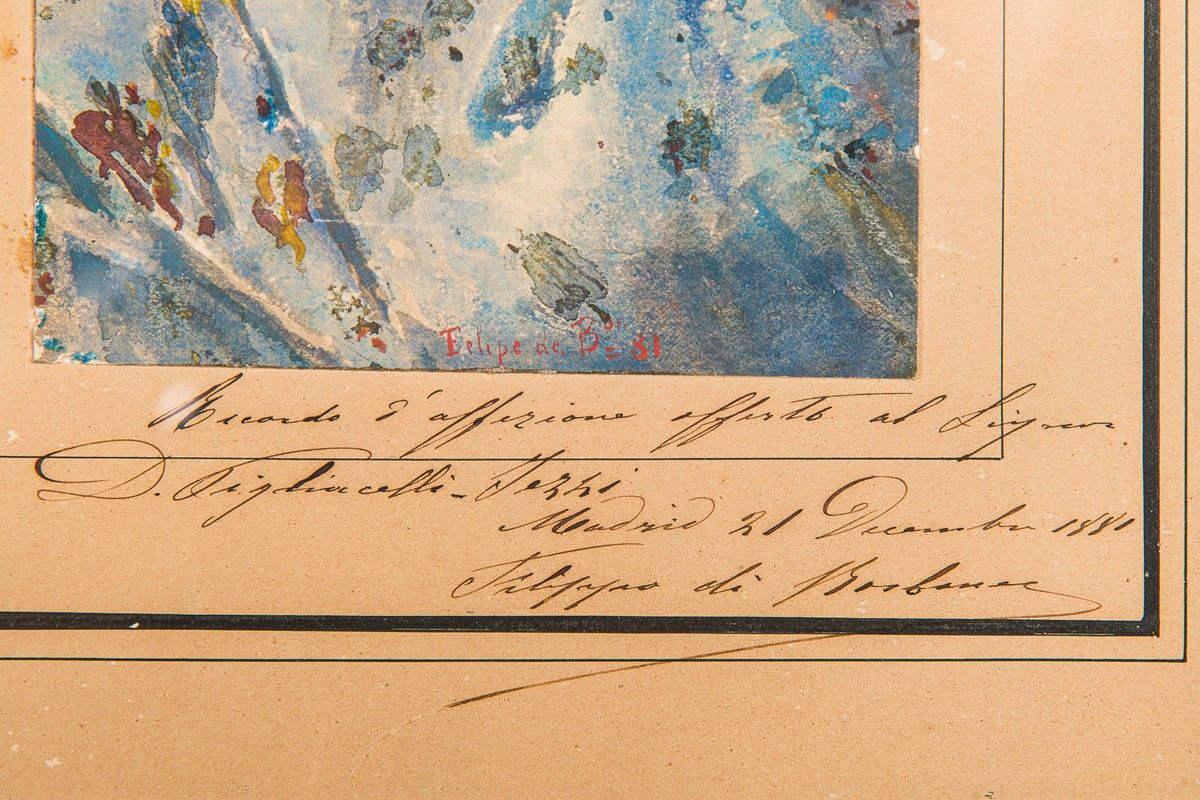 Felipe de Bon = 81
Ricordo d'affezione offerto al Signor
D. Pigliacelli - Tezzi
Madrid 21 Decembre 1881
Filippo di Borbone